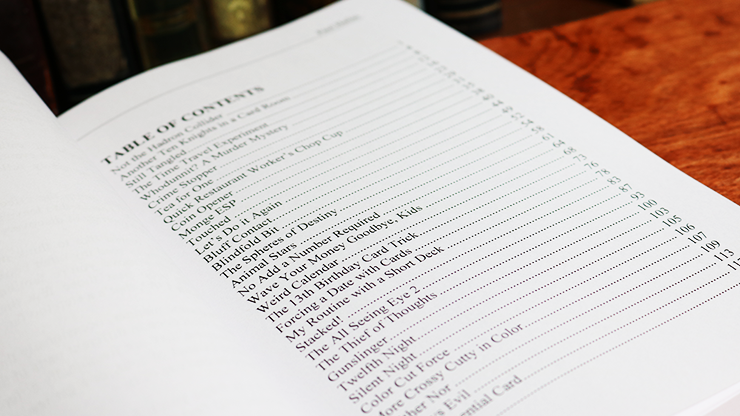 TABLE OF CONTENTS
Not the Hadron Collider
Another Ten Knights in a Card Room
Still Tangled
The Time Travel Experiment
Whodunnit? A Murder Mystery
Crime Stopper
Tea for One
Quick Restaurant Worker's Chop Cup
Coin Opener
Monge ESP
Touched
Let's Do it Again
Bluff Contact
Blindfold Bit
The Spheres of Destiny
Animal Stars
No Add a Number Required
Wave Your Money Goodbye, Kids
Weird Calendar
The 13th Birthday Card Trick
Forcing a Date with Cards
My Routine with a Short Deck
Stacked!
The All Seeing Eye 2
The Thief of Thoughts
Gunslinger
Twelfth Night
Silent Night
Color Cut Force
More Crossy Cutty in Color
Nor
Evil
Card
64
68
73
76
78
83
87
93
100
103
105
106
107
109
113